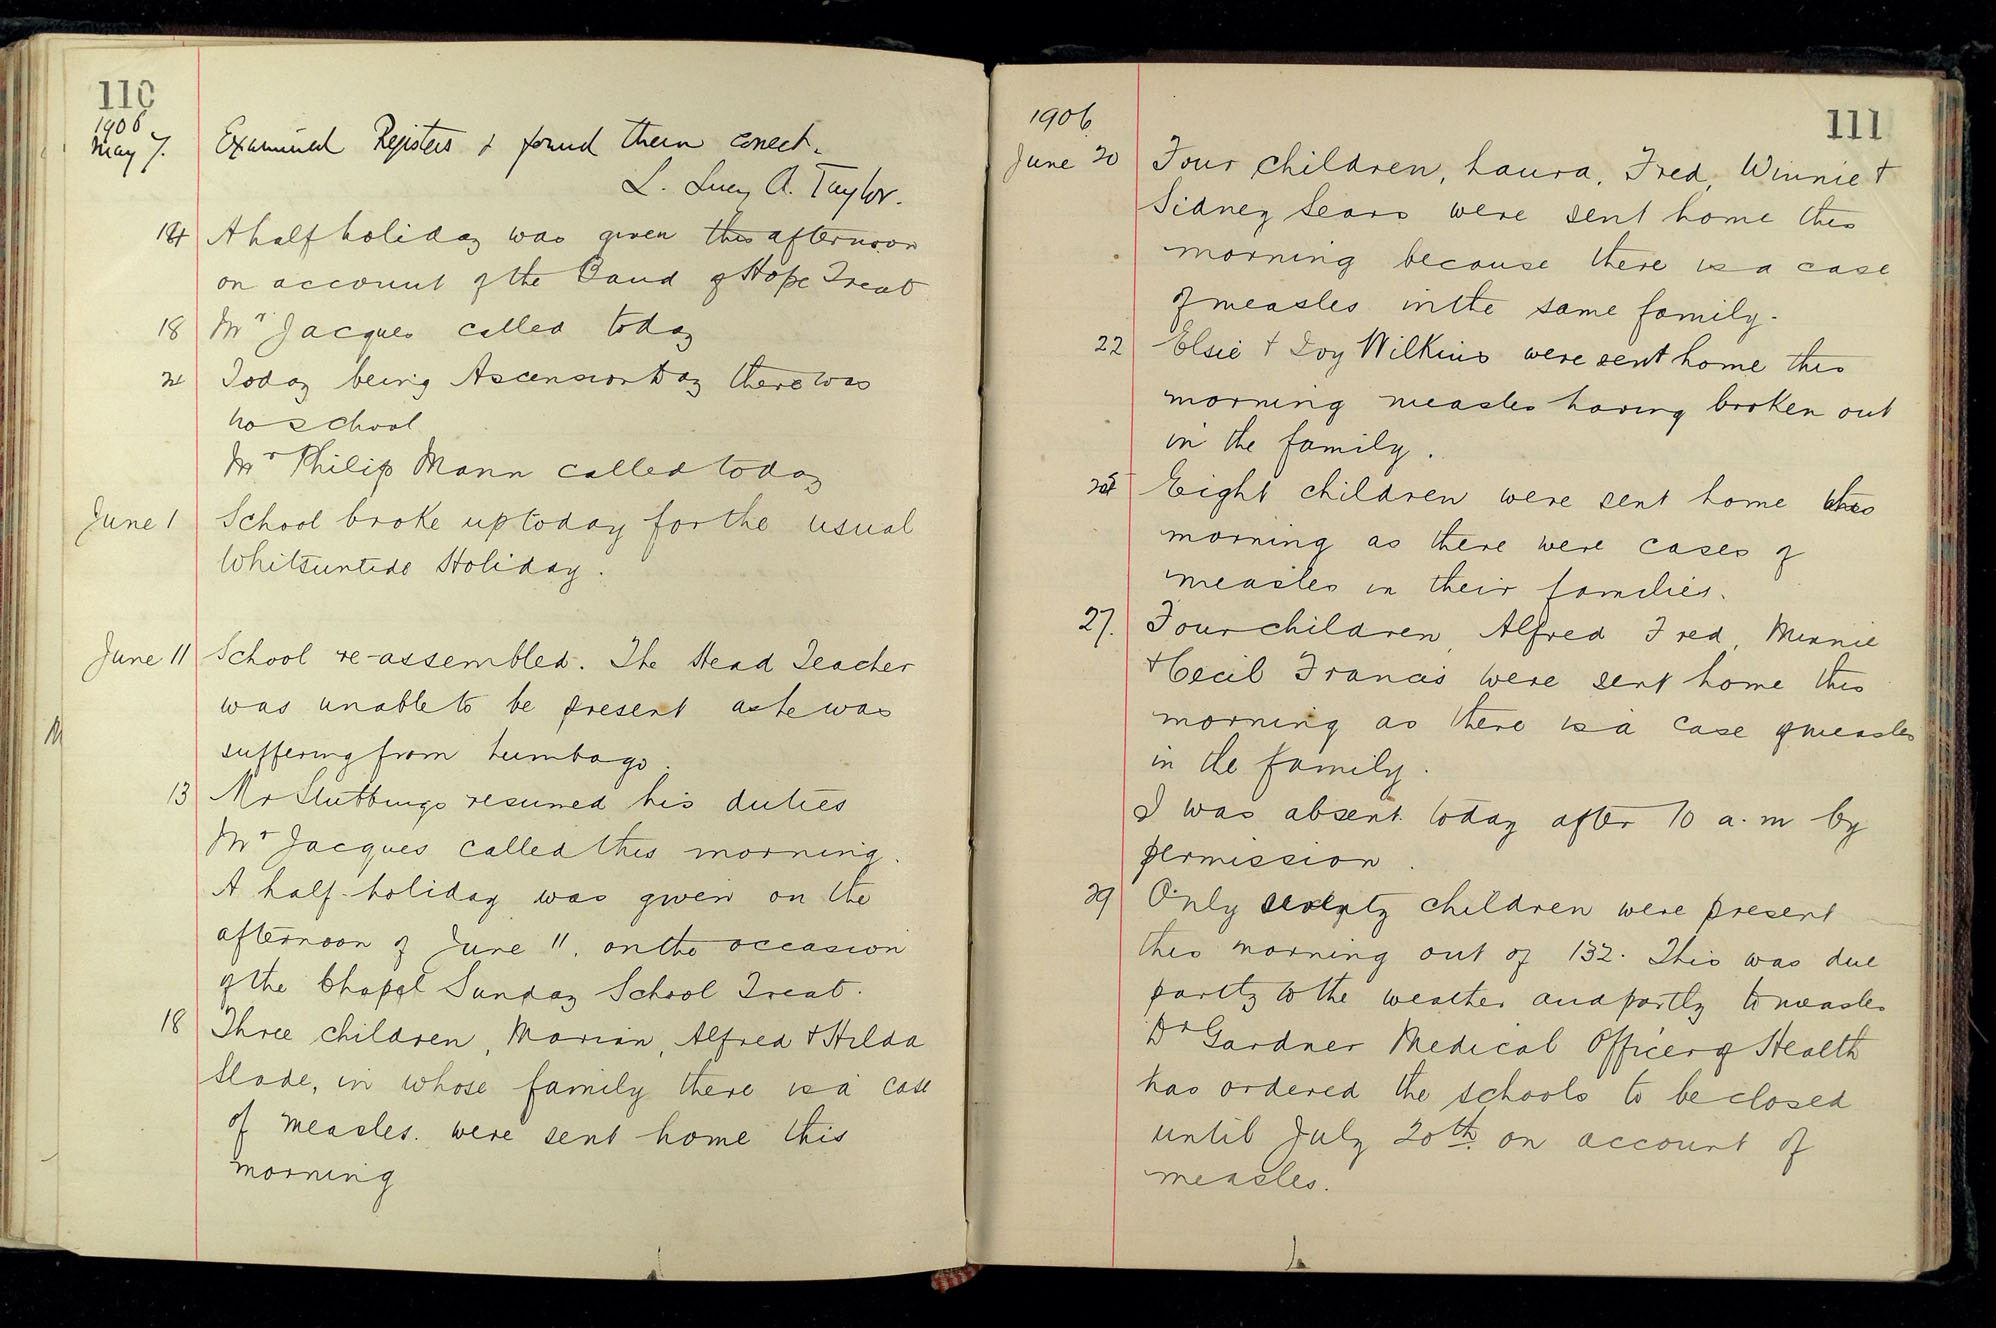 110
1906
May 7. Examined Registers & found them correct.
L. Lucy A. Taylor.
14 A half holiday was given this afternoon
on account of the Band of Hope Treat
18 Mr Jacques called today
24 Today being Ascension Day there was
no school
Mr Philip Mann called today
June 1 School broke up today for the usual
Whitsuntide Holiday.
June 11 School re-assembled. The Head Teacher
was unable to be present as he was
suffering from lumbago.
13 Mr Stubbings resumed his duties
Mr Jacques called this morning.
A half-holiday was given on the
afternoon of June 11. on the occasion
of the Chapel Sunday School Treat.
18 Three children, Marian, Alfred & Hilda
Slade, in whose family there is a case
of measles. were sent home this
morning
M
111
1906
June 20 Four children, Laura, Fred, Winnie &
Sidney Sears were sent home this
morning because there is a case
of measles in the same family.
22 Elsie & Ivy Wilkins were sent home this
morning measles having broken out
in the family.
25 Eight children were sent home this
morning as there were cases of
measles in their families.
27. Four children, Alfred Fred, Minnie
& Cecil Francis were sent home this
morning as there is a case of measles
in the family.
I was absent today after 10 a.m by
permission.
29 Only seventy children were present
this morning out of 132. This was due
partly to the weather and partly to measles
Dr Gardner Medical Officer of Health
has ordered the schools to be closed
until July 20th. on account of
measles.